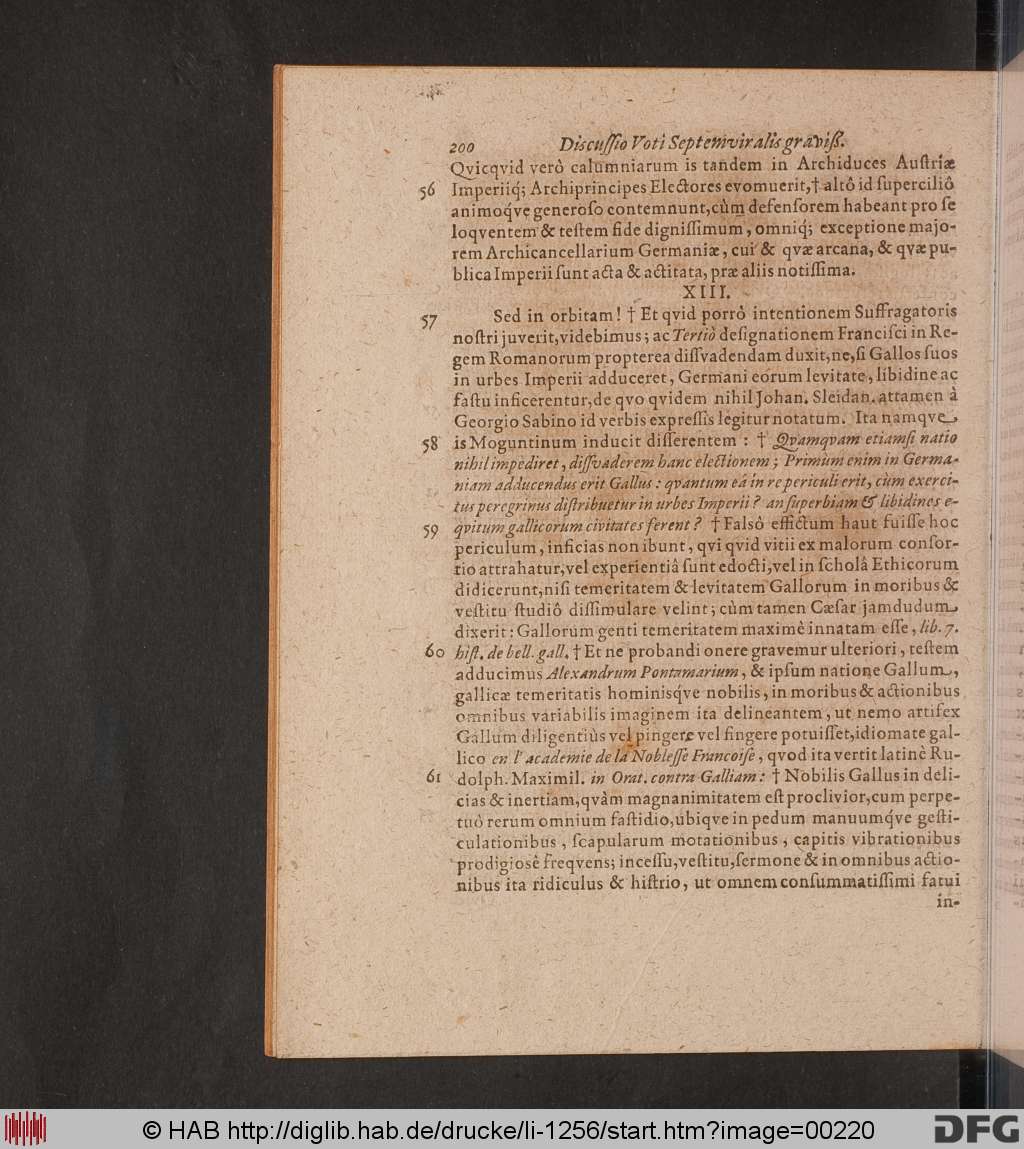 200 Discuſſio Voti Septemviralis graviß.
Qvicqvid verò calumniarum is tandem in Archiduces Auſtriæ
56 Imperiiq́; Archiprincipes Electores evomuerit,† altô id ſuperciliô
animoq́ve generoſo contemnunt,cùm defenſorem habeant pro ſe
loqventem & teſtem fide digniſſimum, omniq́; exceptione majo-
rem Archicancellarium Germaniæ, cui & qvæ arcana, & qvæ pu-
blica Imperii ſunt acta & actitata, præ aliis notiſſima.
XIII.
57 Sed in orbitam! † Et qvid porrò intentionem Suffragatoris
noſtri juverit,videbimus; ac Tertiò deſignationem Franciſci in Re-
gem Romanorum propterea diſſvadendam duxit,ne,ſi Gallos ſuos
in urbes Imperii adduceret, Germani eorum levitate, libidine ac
faſtu inficerentur,de qvo qvidem nihil Johan. Sleidan. attamen à
Georgio Sabino id verbis expreſſis legitur notatum. Ita namqve
58 is Moguntinum inducit diſſerentem : † Qvamqvam etiamſi natio
nihil impediret, diſſvaderem hanc electionem; Primùm enim in Germa-
niam adducendus erit Gallus: qvantum eâ in re periculi erit, cùm exerci-
tus peregrinus diſtribuetur in urbes Imperii? an ſuperbiam & libidines e-
59 qvitum gallicorum civitates ferent? † Falsô effictum haut fuiſſe hoc
periculum, inficias non ibunt, qvi qvid vitii ex malorum conſor-
tio attrahatur,vel experientiâ ſunt edocti,vel in ſcholâ Ethicorum
didicerunt,niſi temeritatem & levitatem Gallorum in moribus &
veſtitu ſtudiô diſſimulare velint; cùm tamen Cæſar jamdudum
dixerit: Gallorum genti temeritatem maximè innatam eſſe, lib. 7.
60 hiſt. de bell. gall. † Et ne probandi onere gravemur ulteriori, teſtem
adducimus Alexandrum Pontamarium, & ipſum natione Gallum,
gallicæ temeritatis hominisq́ve nobilis, in moribus & actionibus
omnibus variabilis imaginem ita delineantem, ut nemo artifex
Gallum diligentiùs vel pingere vel fingere potuiſſet,idiomate gal-
lico en l' academie de la Nobleſſe Francoiſe, qvod ita vertit latinè Ru-
61 dolph. Maximil. in Orat. contra Galliam: † Nobilis Gallus in deli-
cias & inertiam,qvàm magnanimitatem eſt proclivior,cum perpe-
tuò rerum omnium faſtidio,ubiqve in pedum manuumq́ve geſti-
culationibus, ſcapularum motationibus, capitis vibrationibus
prodigiosè freqvens; inceſſu,veſtitu,ſermone & in omnibus actio-
nibus ita ridiculus & hiſtrio, ut omnem conſummatiſſimi fatui
in-
© HAB http://diglib.hab.de/drucke/li-1256/start.htm?image=00220
DFG